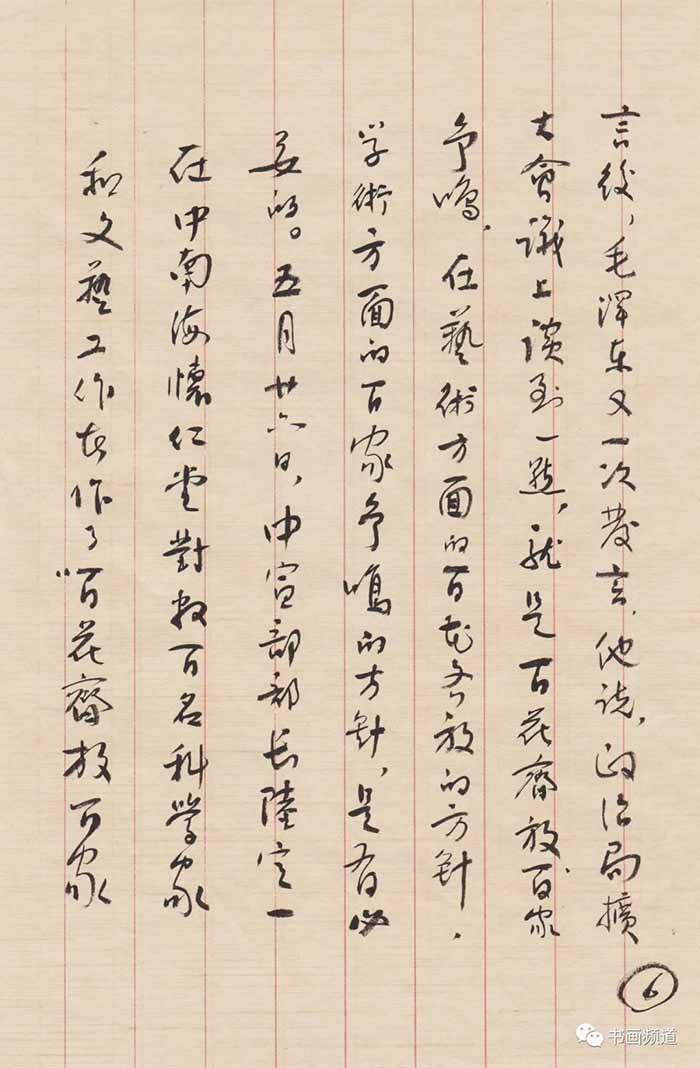 言後，毛澤东又一次發言，他说，政治局擴
大會議上谈到一點，就是百花齊放百家
争鸣，在藝術方面的百花齐放的方针，
学術方面的百家争鳴的方針，是有必
要的。五月廿六日，中宣部部长陸定一
在中南海懷仁堂對数百名科學家
和文藝工作者作了“百花齊放百家
6
书画频道